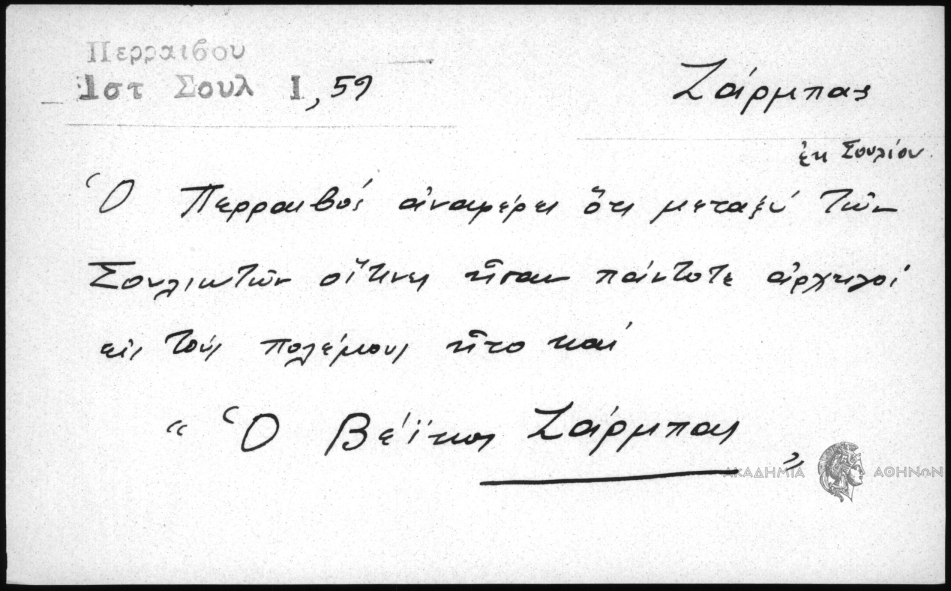 Περραιβου
Ιστ Σουλ Ι, 59
Ζάρμπας
ἐκ Σουλίου
Ὁ Περραιβός ἀναφέρει ὅτι μεταξύ τῶν
Σουλιωτῶν οἵτινες ἦσαν πάντοτε ἀρχηγοί
εἰς τούς πολέμους ἦτο καί
“ Ὁ Βέϊκος Ζάρμπας „
ΑΚΑΔΗΜΙΑ ΑΘΗΝΩΝ